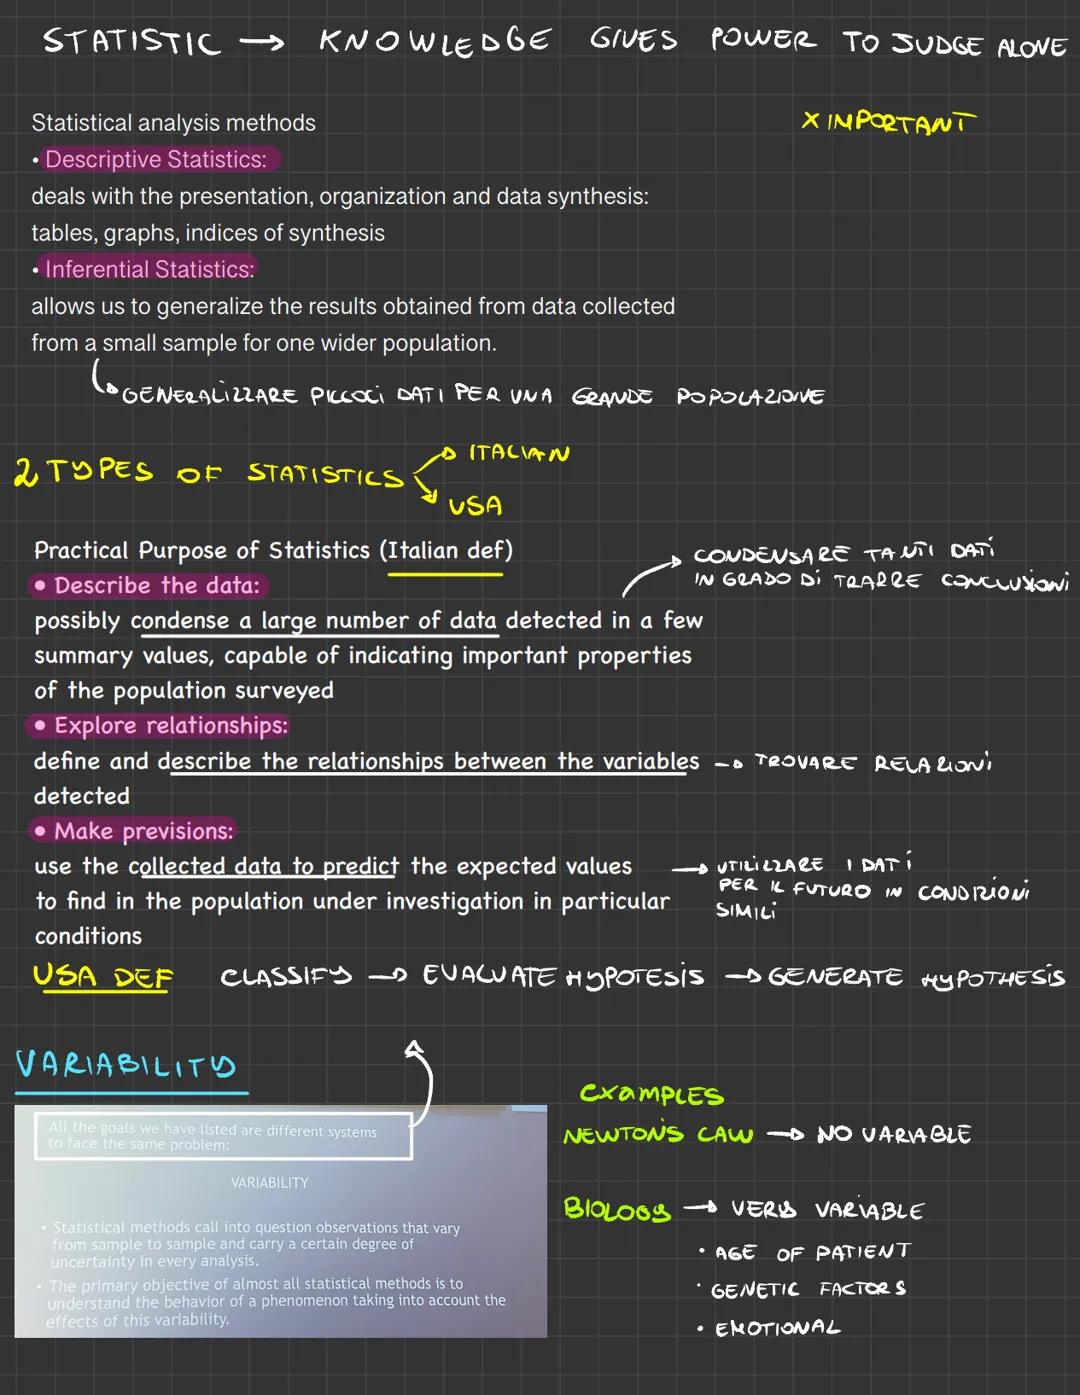 STATISTIC → KNOWLEDGE GIVES POWER TO JUDGE ALONE
X IMPORTANT
Statistical analysis methods
• Descriptive Statistics:
deals with the presentation, organization and data synthesis:
tables, graphs, indices of synthesis
• Inferential Statistics:
allows us to generalize the results obtained from data collected
from a small sample for one wider population.
GENERALIZZARE PICCOLI DATI PER UNA GRANDE POPOLAZIONE
2 TYPES OF STATISTICS
ITALIAN
USA
Practical Purpose of Statistics (Italian def)
• Describe the data:
possibly condense a large number of data detected in a few
summary values, capable of indicating important properties
of the population surveyed
CONDENSARE TANTI DATI
IN GRADO DI TRARRE CONCLUSIONI
• Explore relationships:
define and describe the relationships between the variables → TROVARE RELAZIONI
detected
• Make previsions:
use the collected data to predict the expected values
to find in the population under investigation in particular
conditions
→ UTILIZZARE I DATI
PER IL FUTURO IN CONDIZIONI
SIMILI
USA DEF CLASSIFY → EVALUATE HYPOTESIS → GENERATE HYPOTHESIS
VARIABILITY
All the goals we have listed are different systems
to face the same problem:
VARIABILITY
• Statistical methods call into question observations that vary
from sample to sample and carry a certain degree of
uncertainty in every analysis.
• The primary objective of almost all statistical methods is to
understand the behavior of a phenomenon taking into account the
effects of this variability.
EXAMPLES
NEWTON'S LAW → NO VARIABLE
BIOLOGY → VERY VARIABLE
• AGE OF PATIENT
• GENETIC FACTORS
• EMOTIONAL